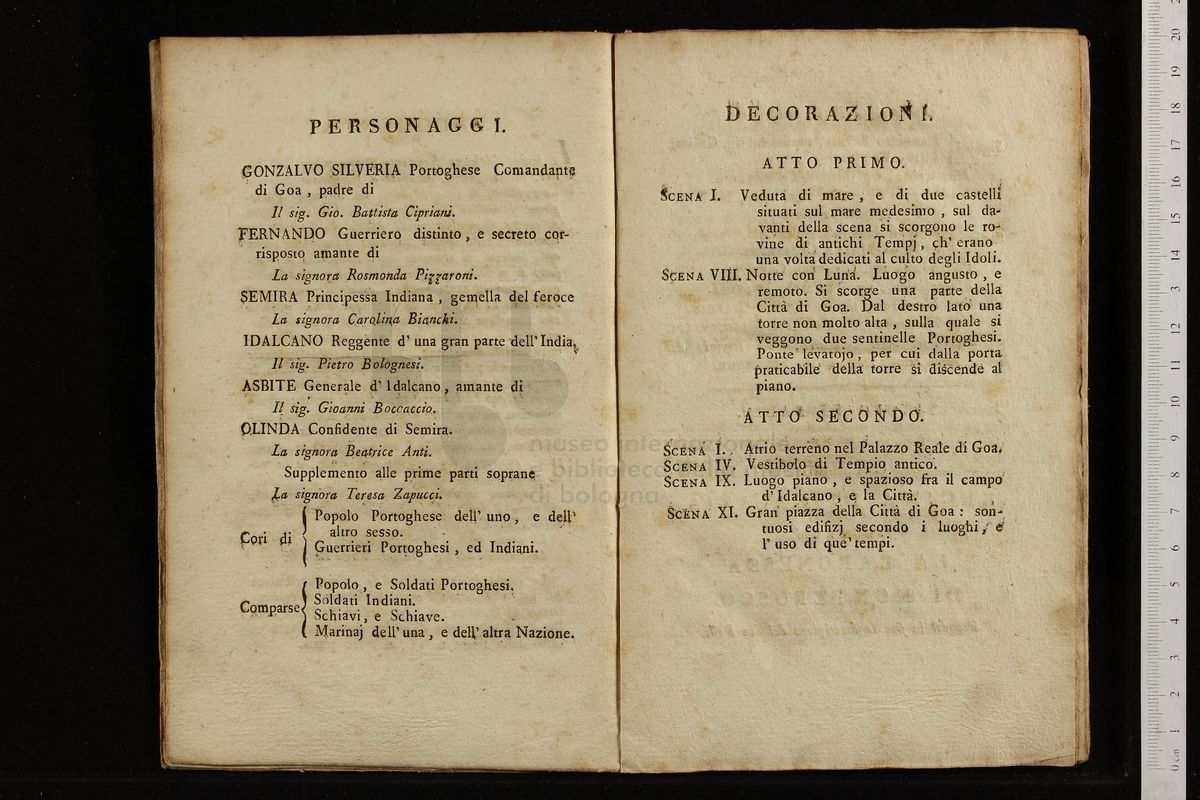 PERSONAGGI.
GONZALVO SILVERIA Portoghese Comandante
di Goa , padre di
Il sig. Gio. Battista Cipriani.
FERNANDO Guerriero distinto , e secreto cor-
risposto amante di
La signora Rosmonda Pizzaroni.
SEMIRA Principessa Indiana , gemella del feroce
La signora Carolina Bianchi.
IDALCANO Reggente d' una gran parte dell' India.
Il sig. Pietro Bolognesi.
ASBITE Generale d' Idalcano , amante di
Il sig. Gioanni Boccaccio.
OLINDA Confidente di Semira.
La signora Beatrice Anti.
Supplemento alle prime parti soprane
La signora Teresa Zapucci.
Cori di { Popolo Portoghese dell' uno , e dell'
altro sesso.
Guerrieri Portoghesi , ed Indiani.
Comparse { Popolo , e Soldati Portoghesi.
Soldati Indiani.
Schiavi , e Schiave.
Marinaj dell' una , e dell' altra Nazione.
DECORAZIONI.
ATTO PRIMO.
SCENA I. Veduta di mare , e di due castelli
situati sul mare medesimo , sul da-
vanti della scena si scorgono le ro-
vine di antichi Tempj , ch' erano
una volta dedicati al culto degli Idoli.
SCENA VIII. Notte con Luna. Luogo angusto , e
remoto. Si scorge una parte della
Città di Goa. Dal destro lato una
torre non molto alta , sulla quale si
veggono due sentinelle Portoghesi.
Ponte levatojo , per cui dalla porta
praticabile della torre si discende al
piano.
ATTO SECONDO.
SCENA I. Atrio terreno nel Palazzo Reale di Goa.
SCENA IV. Vestibolo di Tempio antico.
SCENA IX. Luogo piano , e spazioso fra il campo
d' Idalcano , e la Città.
SCENA XI. Gran piazza della Città di Goa : son-
tuosi edifizj secondo i luoghi , e
l' uso di que' tempi.
museo internazionale
e biblioteca
di bologna
0 cm 1 2 3 4 5 6 7 8 9 10 11 12 13 14 15 16 17 18 19 20